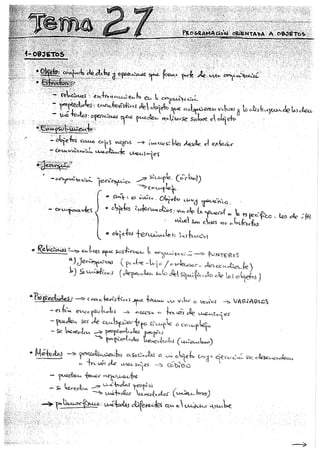 Tema 27
PROGRAMACIÓN ORIENTADA A OBJETOS
1- OBJETOS
• Objeto: conjunto de datos y operaciones que forman parte de una organización
• Estructura:
- relaciones: entroncamiento en la organización
- propiedades: características del objeto que adquieren valores y lo distinguen de los demás
- métodos: operaciones que pueden realizarse sobre el objeto
• Encapsulamiento:
- objetos como cajas negras → inaccesibles desde el exterior
- comunicación mediante mensajes
• Jerarquía:
- organización jerárquica → simple (árbol)
→ compleja
- componentes
• raíz: es único. Objeto muy genérico.
• objetos intermedios: van de lo general a lo específico. Los de
nivel son clases abstractas
• objetos terminales: instancias
• Relaciones → enlaces que sostienen la organización → PUNTEROS
a) Jerárquicas (padre-hijo / antecesor - descendiente)
b) Semánticas (dependen sólo del significado de los objetos)
• Propiedades → características que toman un valor o varios → VARIABLES
- están encapsuladas → acceso a través de mensajes
- pueden ser de cualquier tipo simple o complejo
- se heredan → propiedades propias
→ propiedades heredadas (miembro)
• Métodos → procedimientos asociados a un objeto cuya ejecución se desencadena
a través de mensajes → CÓDIGO
- pueden tener argumentos
- se heredan → métodos propios
→ métodos heredados (miembros)
→ polimorfismo: métodos diferentes con el mismo nombre
→